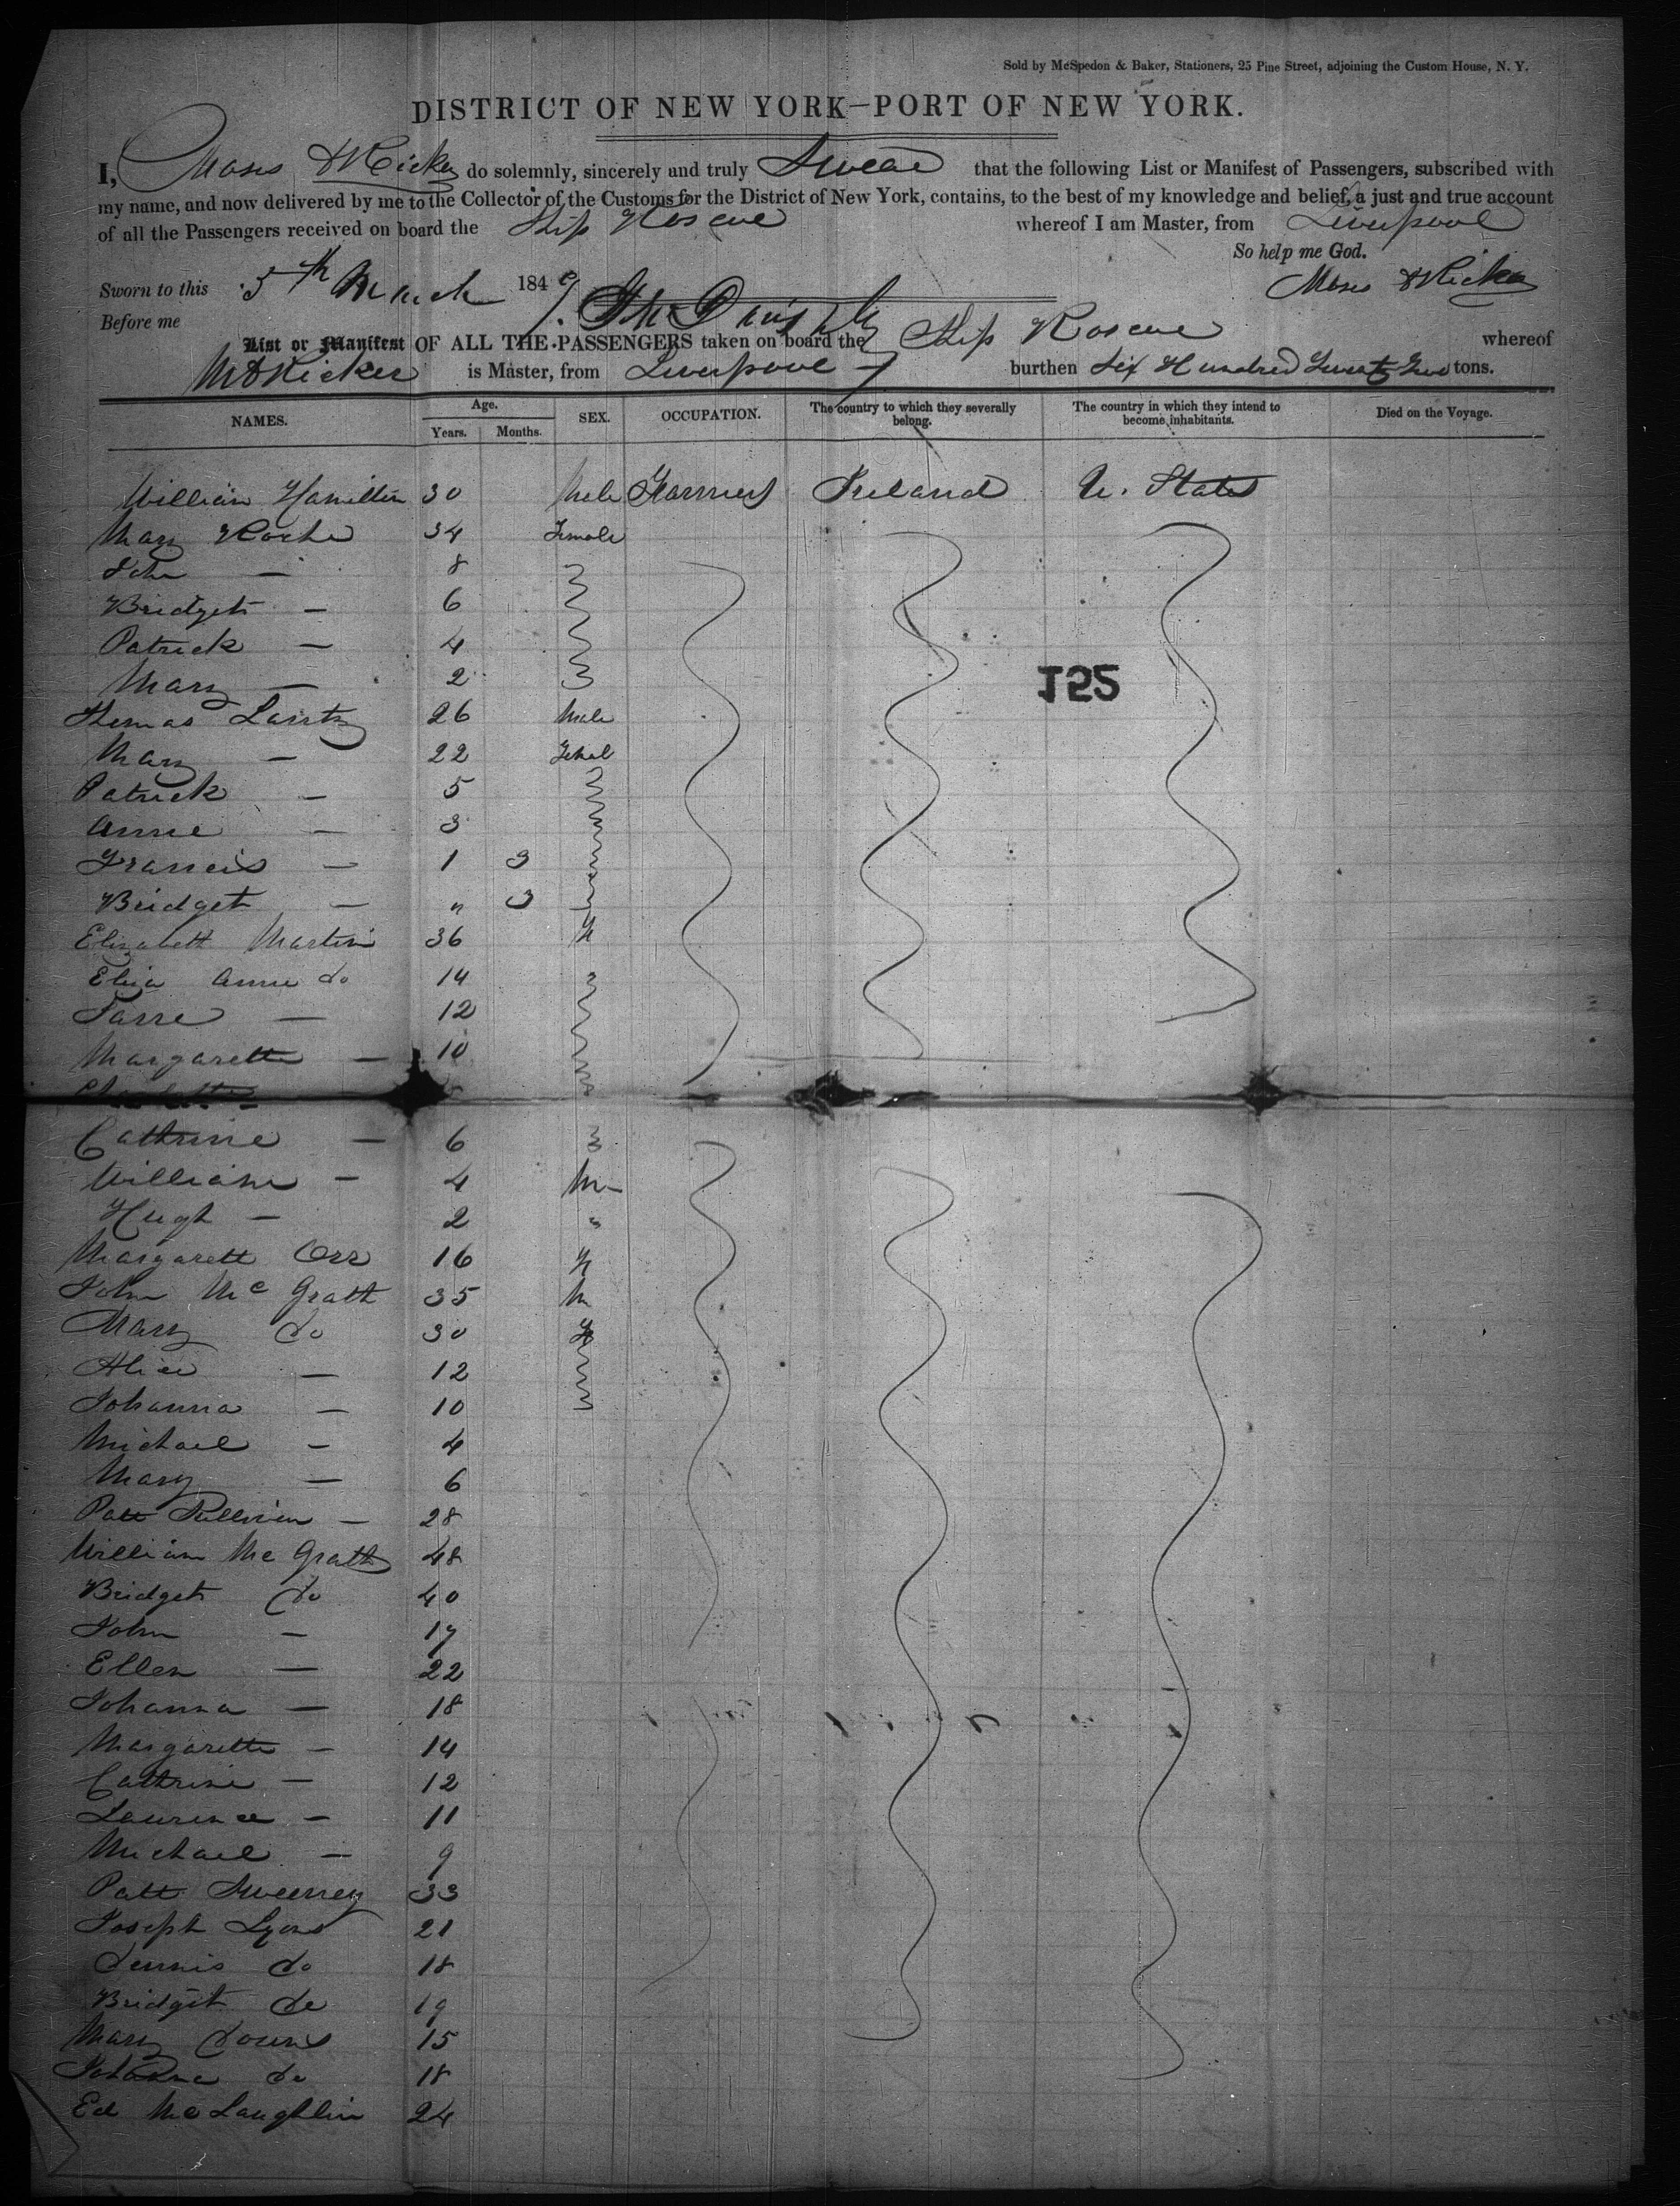 Sold by McSpedon & Baker, Stationers, 25 Pine Street, adjoining the Custom House, N. Y.
DISTRICT OF NEW YORK—PORT OF NEW YORK.
I, Moses D Ricker do solemnly, sincerely and truly Swear that the following List or Manifest of Passengers, subscribed with
my name, and now delivered by me to the Collector of the Customs for the District of New York, contains, to the best of my knowledge and belief, a just and true account
of all the Passengers received on board the Ship Roscoe whereof I am Master, from Liverpool
So help me God.
Sworn to this 5th March 1849 Moses D Ricker
Before me
List or Manifest OF ALL THE PASSENGERS taken on board the Ship Roscoe whereof
M D Ricker is Master, from Liverpool burthen Six Hundred Twenty Two tons.
NAMES. Age. Years. Months. SEX. OCCUPATION. The country to which they severally belong. The country in which they intend to become inhabitants. Died on the Voyage.
William Hamilton 30 Male Farmers Ireland U. States
Mary Roche 34 Female
John — 8
Bridget — 6
Patrick — 4
Mary — 2
125
Thomas 26 Male
Mary — 22 Femal
Patrick — 5
Anne — 3
Francis — 1 3
Bridget — " 3
Elizabeth Martin 36 F
Eliza Anne do 14
— 12
Margarett — 10
Cathrine — 6
William — 4 M—
Hugh — 2 "
Margarett Orr 16 F
John Mc Grath 35 M
Mary do 30 F
Alice — 12
Johanna — 10
Michael — 4
Mary — 6
Patt Sullivan — 28
William Mc Grath 48
Bridget do 40
John — 17
Ellen — 22
Johanna — 18
Margarette — 14
Cathrine — 12
Laurence — 11
Michael — 9
Patt Sweeney 33
Joseph Lyons 21
Dennis do 18
Bridget do 19
Mary Downs 15
Johanna do 18
Ed McLaughlin 24